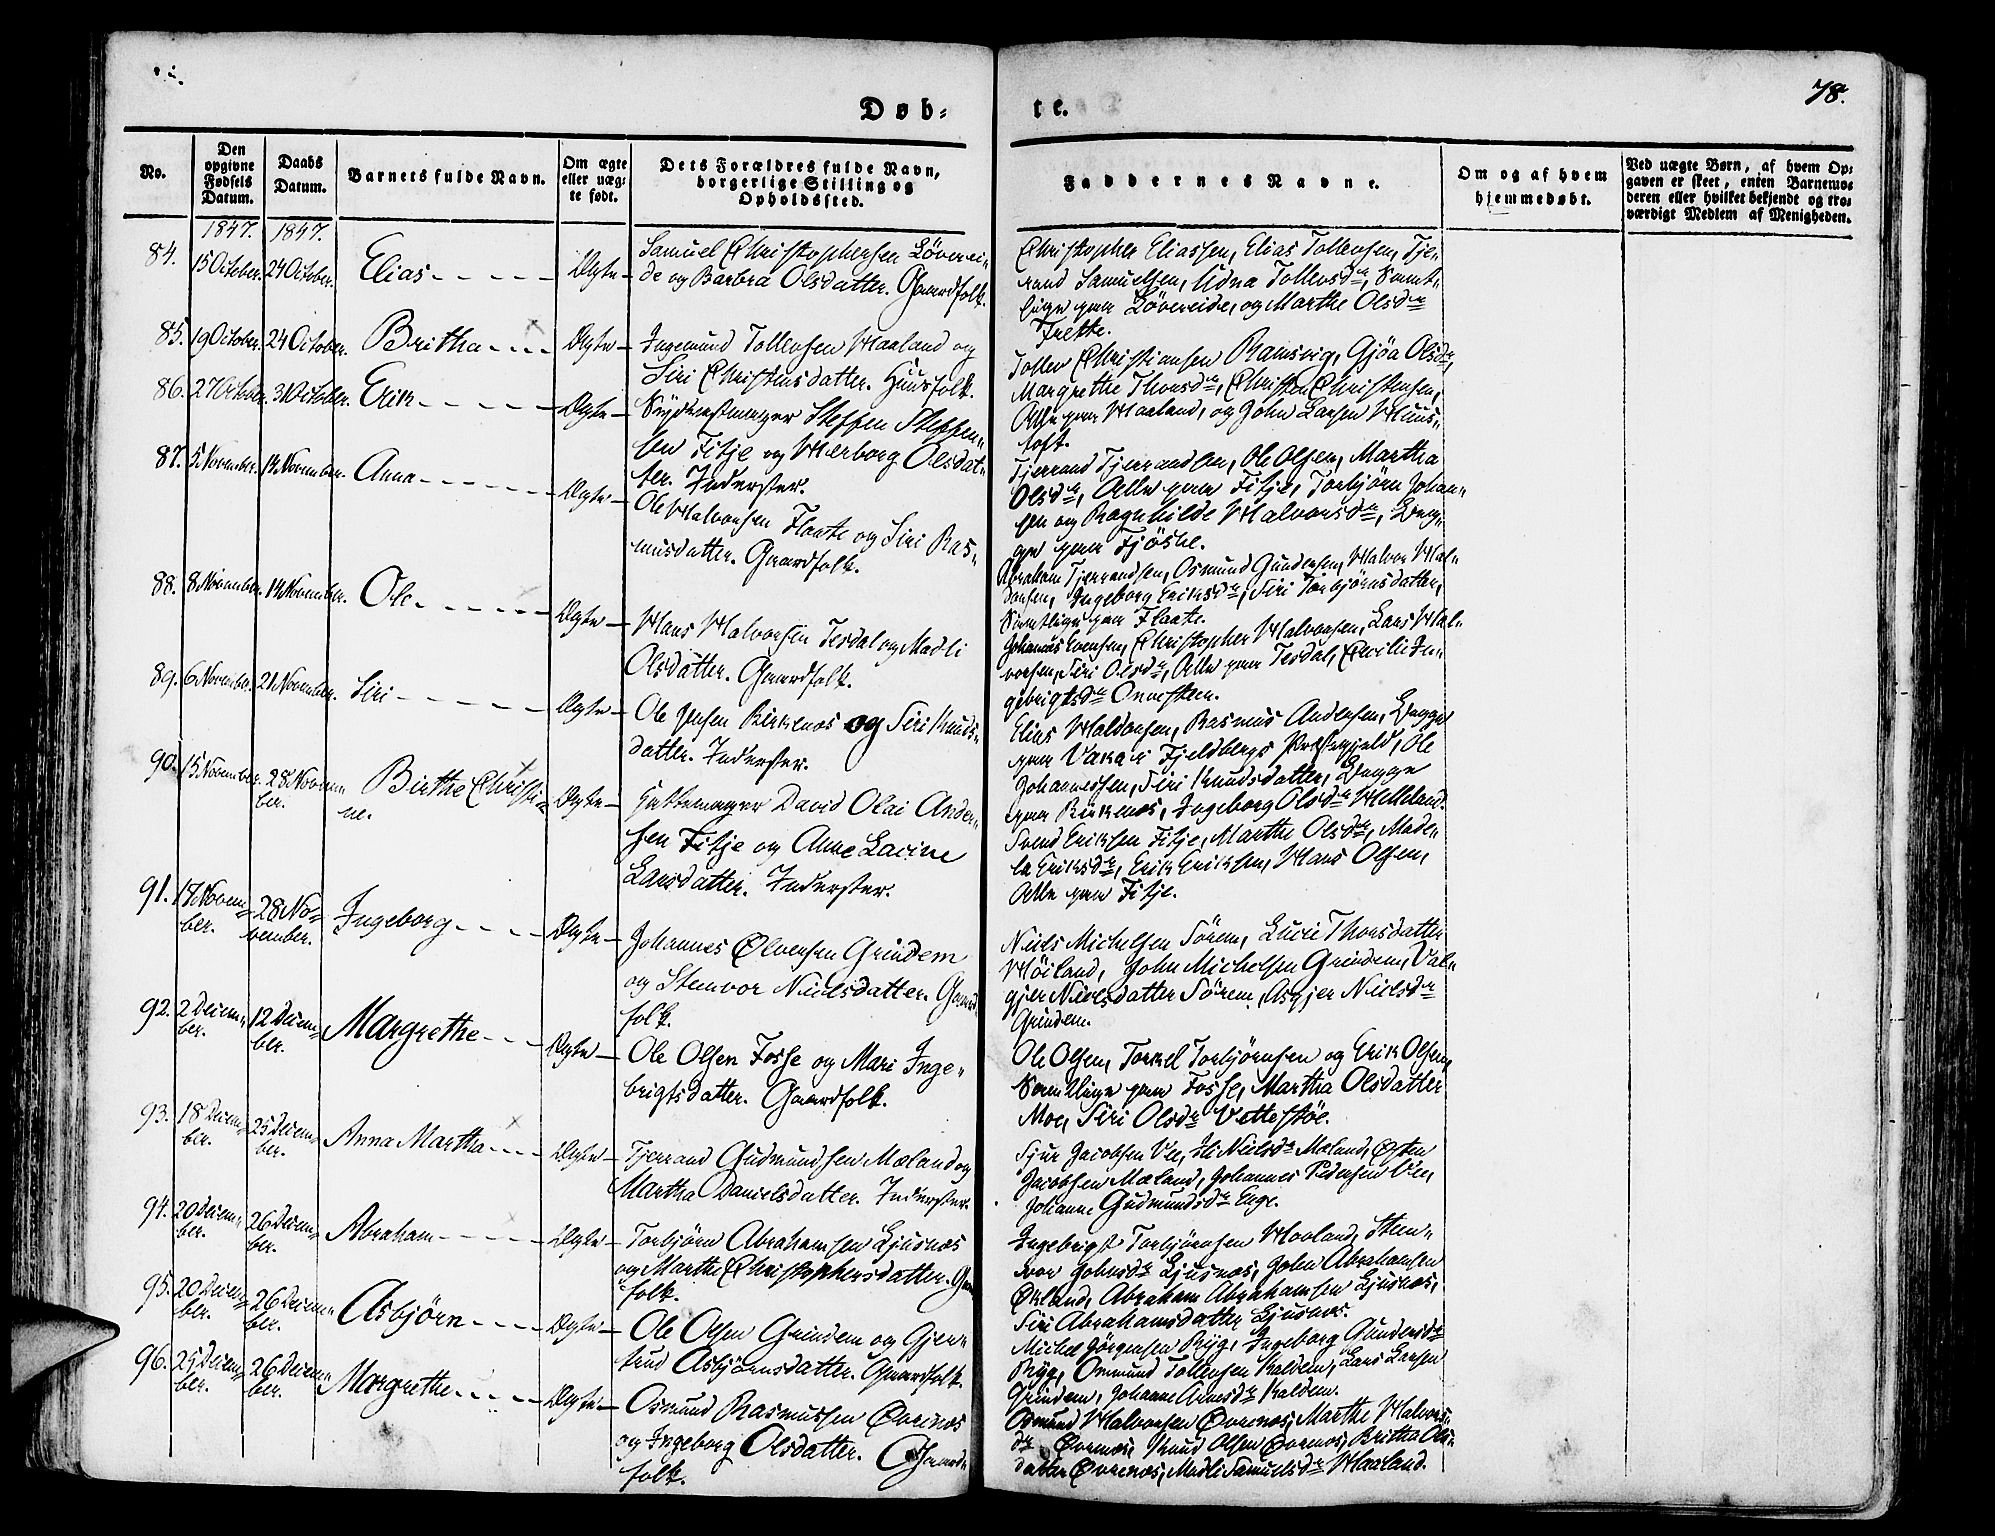 78.
Døb-
te.
No.
Den opgivne Fødsels Datum.
Daabs Datum.
Barnets fulde Navn.
Om ægte eller uæg-te født.
Dets Forældres fulde Navn, borgerlige Stilling og Opholdssted.
Faddernes Navne.
Om og af hvem hjemmedøbt.
Ved uægte Børn, af hvem Op-gaven er skeet, enten Barnemo-deren eller hvilket bekjendt og tro-værdigt Medlem af Menigheden.
1847. 1847.
84. 15 October. 24 October. Elias Ægte
Samuel Christophersen Løverei-
de og Barbra Olsdatter. Gaardfolk.
Christopher Eliassen, Elias Tollevsen, Tje-
rand Samuelsen, Udna Tollevsdr, Samt-
lige paa Løvereide, og Marthe Olsdr
Trette.
85. 19 October. 24 October. Britha Ægte
Ingemund Tollevsen Haaland og
Siri Christensdatter. Huusfolk.
Tollev Christiansen Ramsvig, Gjøa Olsdr,
Margrethe Thorsdr, Christen Christensen,
Alle paa Haaland, og John Larsen Huus-
toft.
86. 27 October. 31 October. Erik Ægte
Steffen Steffen-
sen Fitje og Herborg Olsdat-
ter. Inderster.
Tjerrand Tjerrandsen, Ole Olsen, Martha
Olsdr, Alle paa Fitje, Torbjörn Johan-
sen og Ragnhilde Halvorsdr, Beg-
ge paa Fjösne.
87. 5 November. 14 November. Anna Ægte
Ole Halvorsen Flaate og Siri Ras-
musdatter. Gaardfolk.
Abraham Tjerrandsen, Osmund Gundersen, Halvor Hal-
vorsen, Ingeborg Eriksdr, Siri Torbjörnsdatter,
Samtlige paa Flaate.
88. 8 November. 14 November. Ole Ægte
Hans Halvorsen Tesdal og Madli
Olsdatter. Gaardfolk.
Johannes Evensen, Christopher Halvorsen, Lars Hal-
vorsen, Siri Olsdr, Alle paa Tesdal, Cecilie In-
gebrigtsdr
89. 6 November. 21 November. Siri Ægte
Ole Jensen Birkenæs og Siri Knuds-
datter. Inderster.
Elias Haldorsen, Rasmus Andersen, Begge
paa Vaka i Fjeldbergs Præstegjeld, Ole
Johannessen, Siri Knudsdatter, Begge
paa Birkenæs, Ingeborg Olsdr Helleland.
90. 15 November. 28 Novem-
ber. Birthe Christi-
ne. Ægte
David Olai Ander-
sen Fitje og Anne Lavine
Larsdatter. Inderster.
Svend Eriksen Fitje, Marthe Olsdr, Made-
la Eriksdr, Erik Eriksen, Hans Olsen,
Alle paa Fitje.
91. 17 Novem-
ber. 28 No-
vember. Ingeborg Ægte
Johannes Olversen Grindem
og Stenvor Nielsdatter. Gaard-
folk.
Niels Michelsen Sörem, Lucie Thorsdatter
Höiland, John Michelsen Grindem, Val-
gjer Nielsdatter Sörem, Asgjer Nielsdr
Grindem.
92. 2 Decem-
ber. 12 Decem-
ber. Margrethe Ægte
Ole Olsen Fosse og Mari Inge-
brigtsdatter. Gaardfolk.
Ole Olsen, Torkel Torbjörnsen og Erik Olsen,
Samtlige paa Fosse, Martha Olsdatter
Moe, Siri Olsdr Vettestöe.
93. 18 Decem-
ber. 25 Decem-
ber. Anna Martha Ægte
Tjerrand Gudmundsen Mæland og
Martha Danielsdatter. Inderster.
Sjur Jacobsen Vee, Nielsdr Mæland, Østen
Jacobsen Mæland, Johannes Pedersen Vee,
Johanne Gudmundsdr Enge.
94. 20 Decem-
ber. 26 Decem-
ber. Abraham Ægte
Torbjörn Abrahamsen Ljusnæs
og Marthe Christophersdatter.
folk.
Ingebrigt Torbjörnsen Haaland, Sten-
vor Johnsdr Ljusnæs, John Abrahamsen
Økland, Abraham Abrahamsen Ljusnæs,
Siri Abrahamsdatter Ljusnæs.
95. 20 Decem-
ber. 26 Decem-
ber. Asbjörn Ægte
Ole Olsen Grindem og Gjer-
trud Asbjörnsdatter. Gaardfolk.
Michel Jörgensen Ryg, Ingeborg Gundersdr
Ryg, Osmund Tollevsen Kaldem, Lars Larsen
Grindem, Johanne Arnesdr Kaldem.
96. 25 Decem-
ber. 26 Decem-
ber. Margrethe Ægte
Osmund Rasmussen Øvrenæs
og Ingeborg Olsdatter. Gaard-
folk.
Osmund Halvorsen Øvrenæs, Marthe Halvors-
dr Øvrenæs, Knud Olsen Øvrenæs, Britha Ols-
datter Øvrenæs, Madli Samuelsdr Haaland.